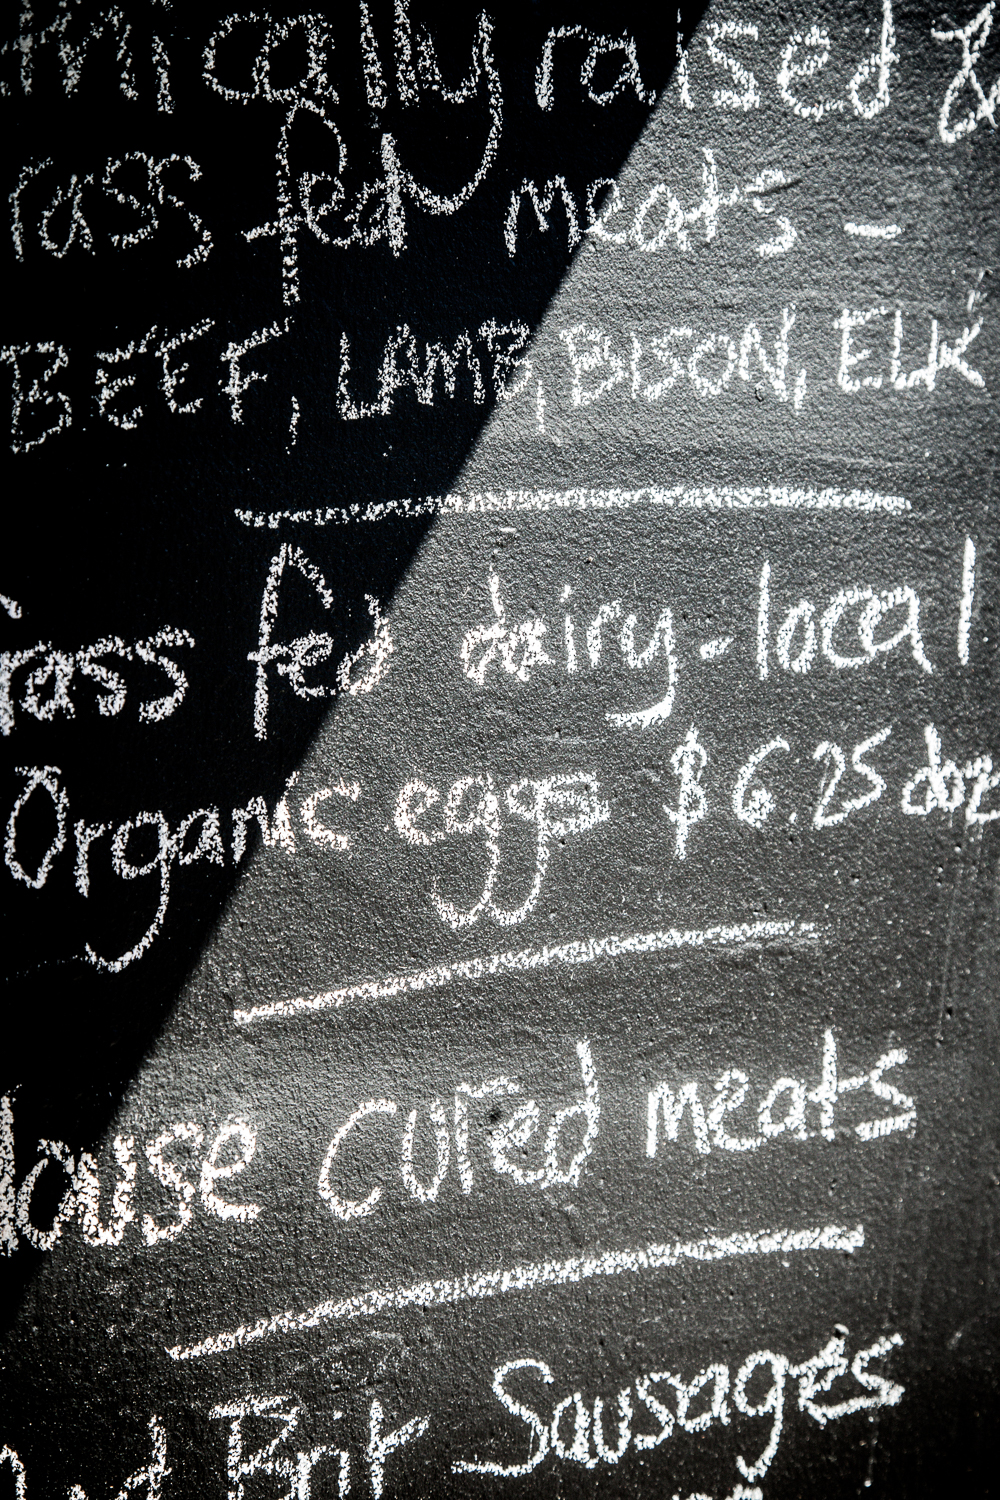 nically raised &
rass fed meats -
BEEF, LAMB, BISON, ELK
rass fed dairy - local
Organic eggs $6.25 doz
House cured meats
Brit Sausages